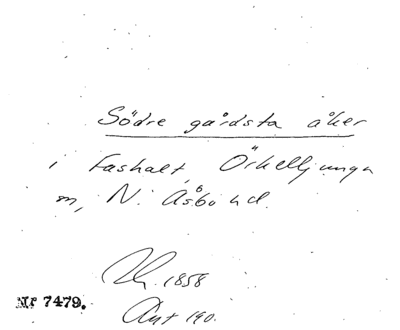 Södre gårdsta åker
i Fashalt, Örkelljunga
m, N. Åsbo hd.
1858
Nr 7479.
Ant 190.